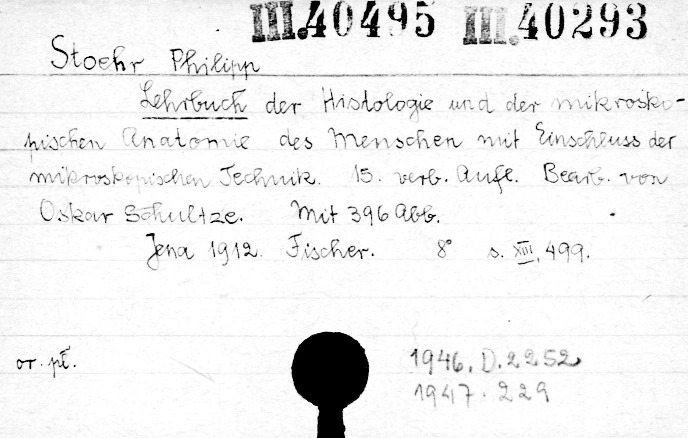 III.40495 III.40293
Stoehr Philipp
Lehrbuch der Histologie und der mikrosko-
pischen Anatomie des Menschen mit Einschluss der
mikroskopischen Technik. 15. verb. Aufl. Bearb. von
Oskar Schultze. Mit 396 Abb.
Jena 1912. Fischer. 8° s. XIII, 499.
or. pł.
1946. D. 2252
1947. 229